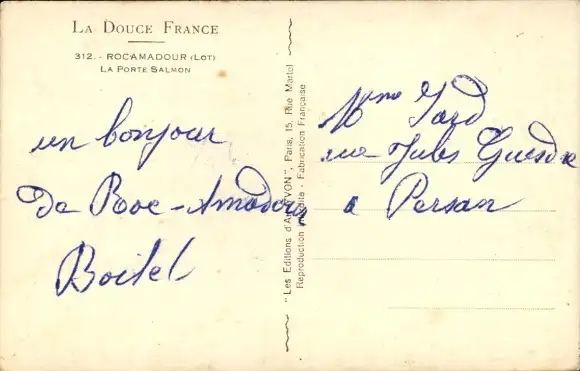 LA DOUCE FRANCE
312. - ROCAMADOUR (LOT)
LA PORTE SALMON
un bonjour
de Roc-Amadour
Boitel
"Les Editions d'Art YVON", Paris, 15, Rue Martel
Reproduction interdite - Fabrication Française
Mme Gard
rue Jules Guesde
a Persan